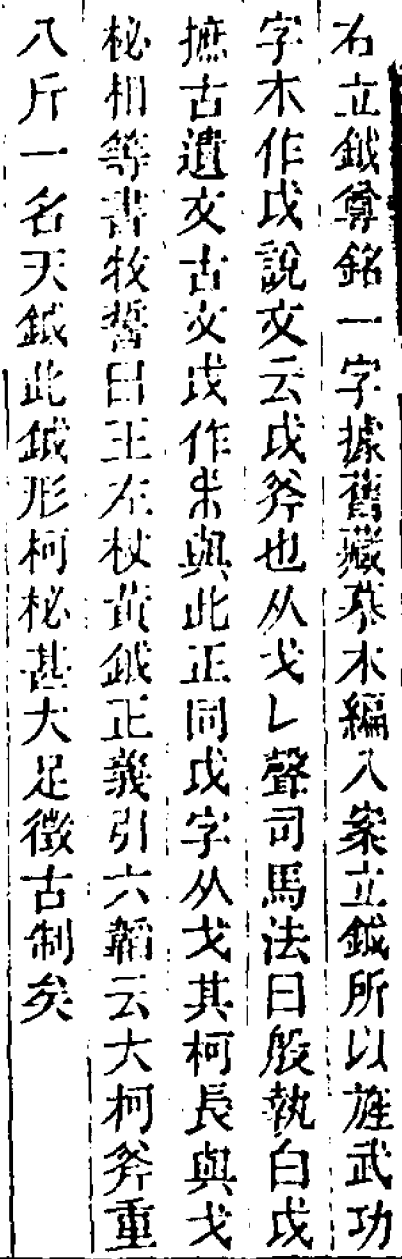 右立鉞尊銘一字據舊藏摹本編入案立鉞所以旌武功
字本作戉說文云戉斧也从戈𠄌聲司馬法曰殷執白戉
摭古遺文古文戉作𣎳與此正同戉字从戈其柯長與戈
柲相等書牧誓曰王左杖黃鉞正義引六韜云大柯斧重
八斤一名天鉞此鉞形柯柲甚大足徵古制矣